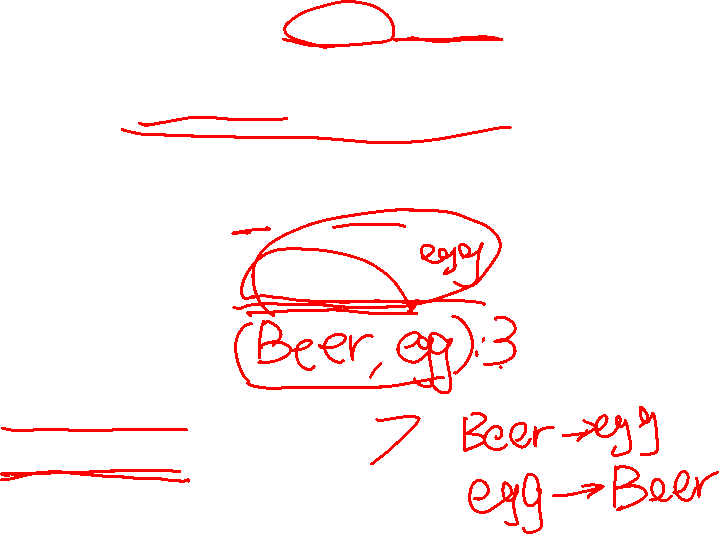 egg
(Beer, egg):3
Beer→egg
egg→Beer